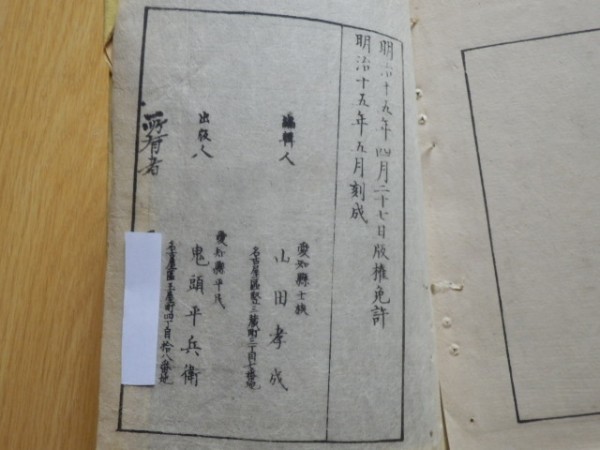 明治十五年四月二十七日版權免許
明治十五年五月刻成
編輯人
愛知縣士族
山田孝成
名古屋區竪三藏町三丁目七番地
出版人
愛知縣平民
鬼頭平兵衛
名古屋區玉屋町四丁目拾八番地
所有者